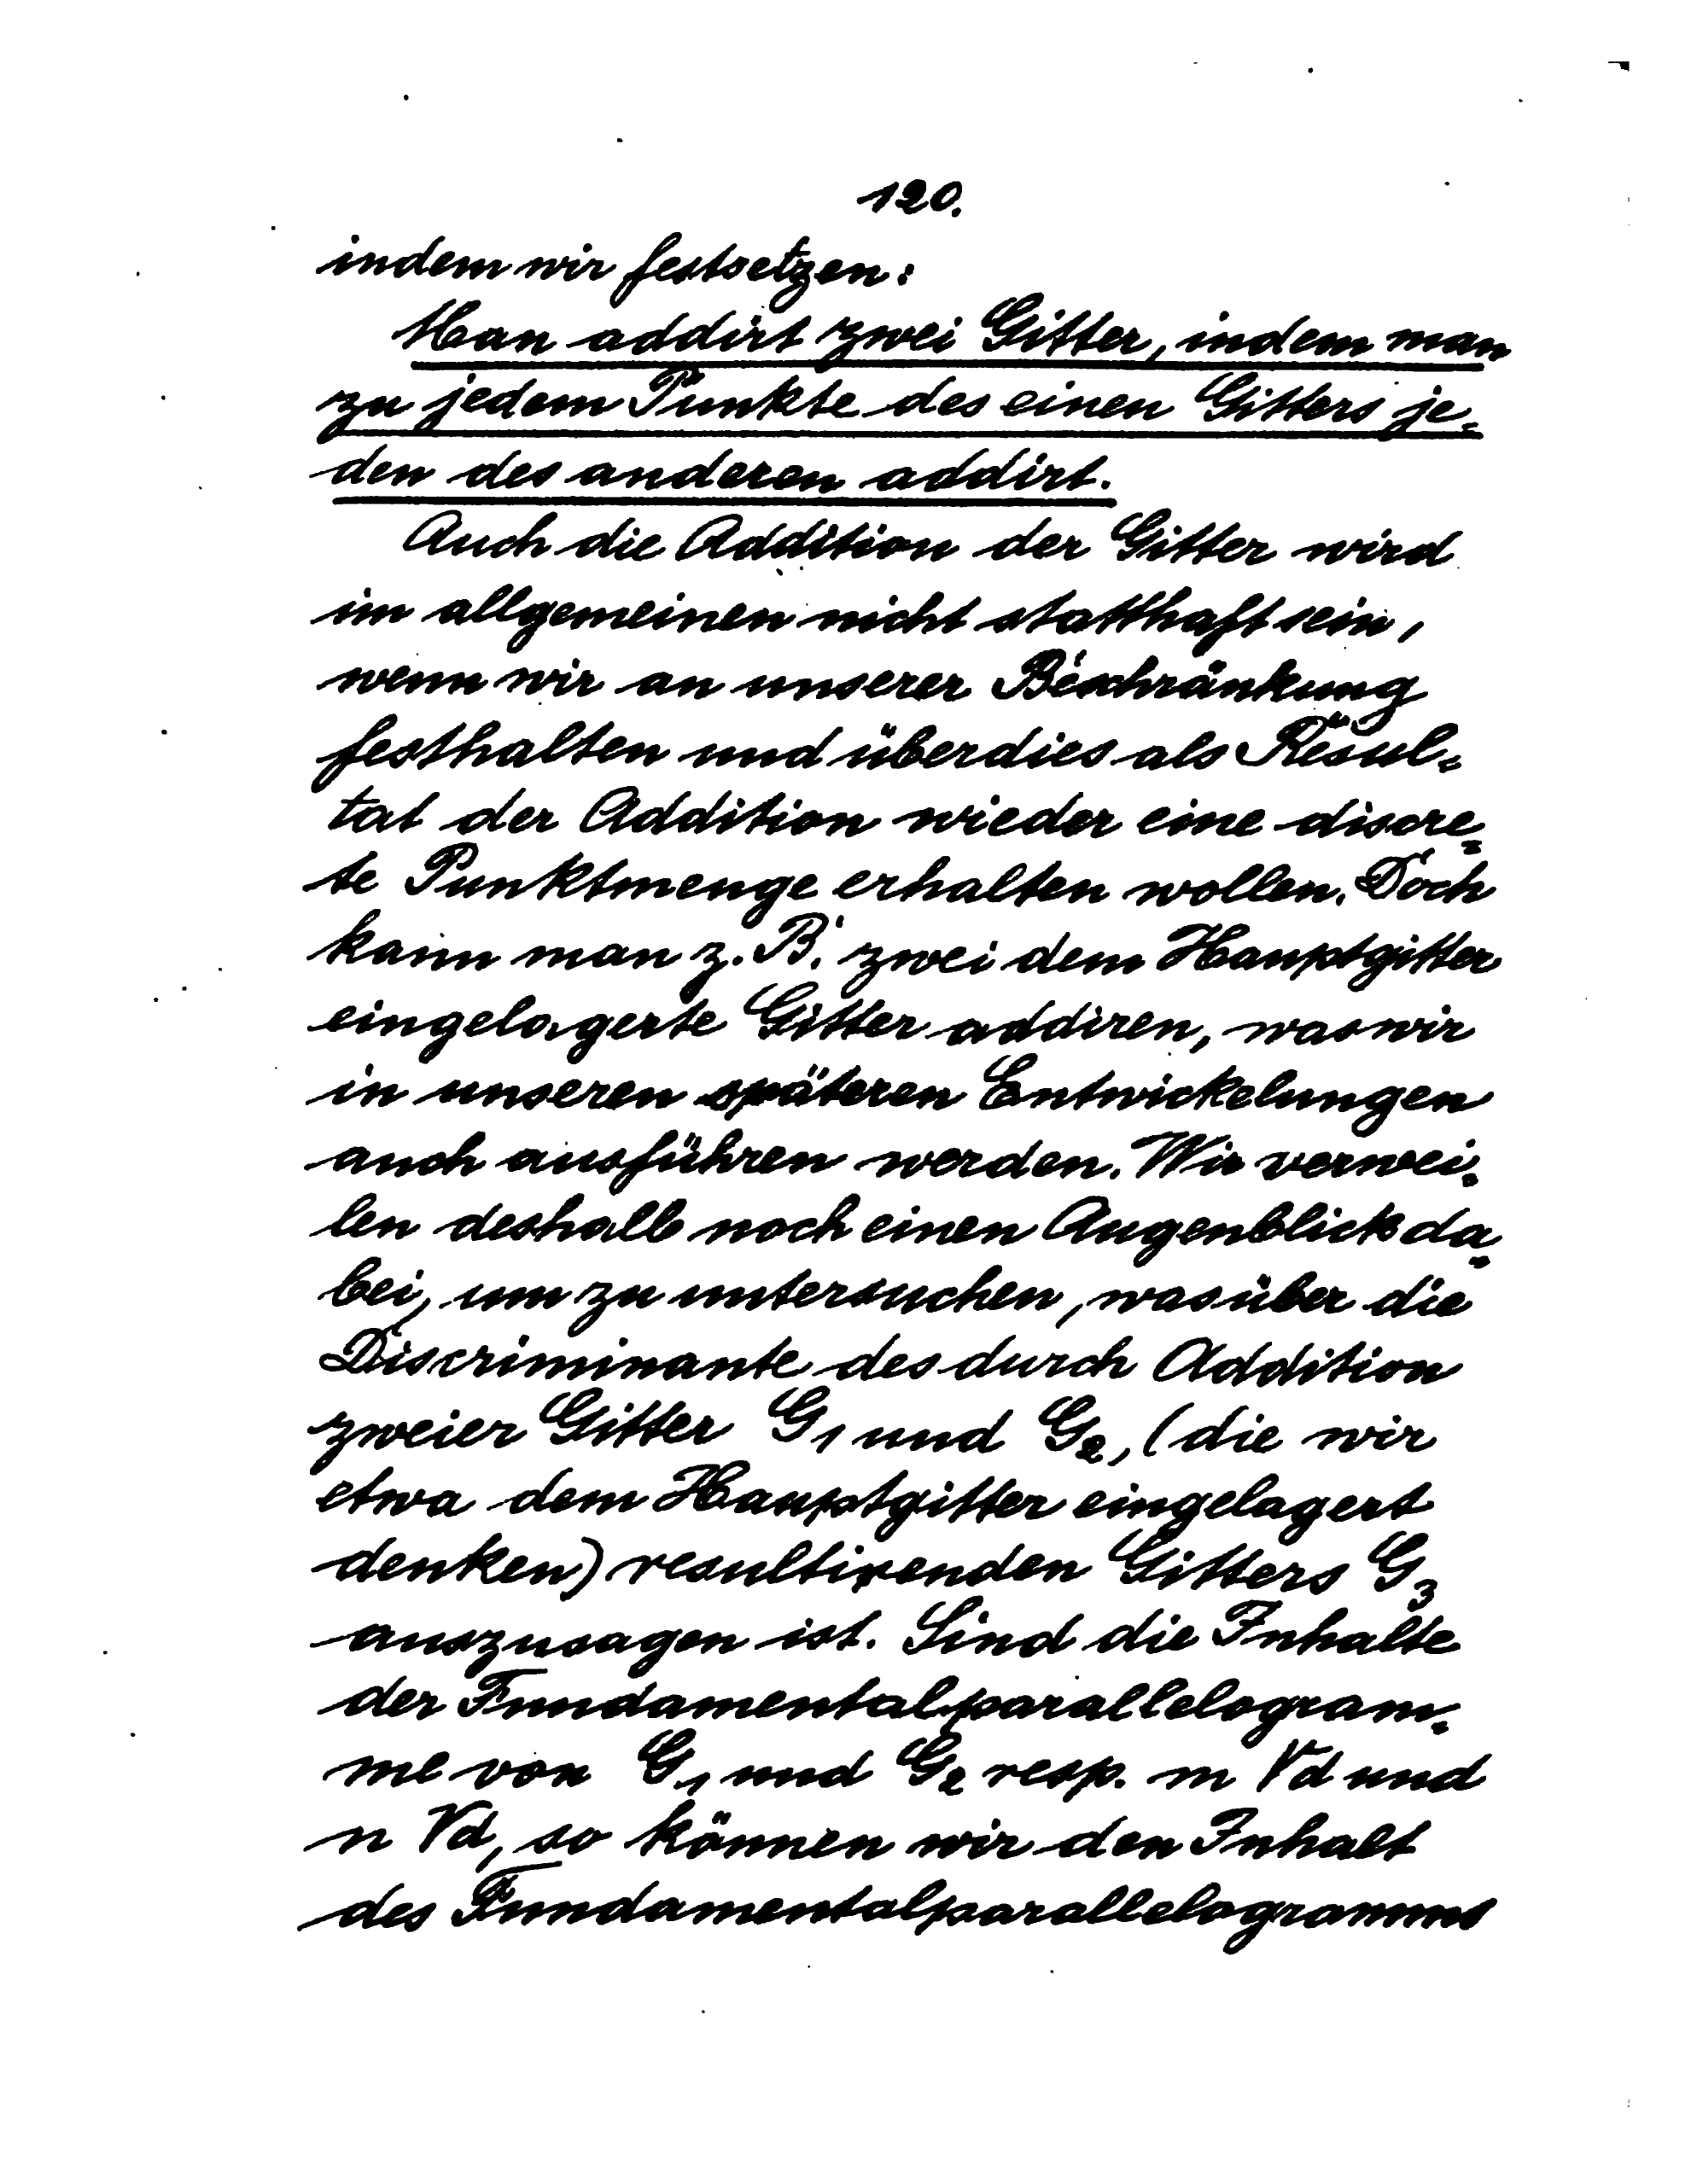 120.
indem wir festsetzen:
Man addirt zwei Gitter, indem man
zu jedem Punkte des einen Gitters je-
den des anderen addirt.
Auch die Addition der Gitter wird
im allgemeinen nicht statthaft sein,
wenn wir an unserer Beschränkung
festhalten und überdies als Resul-
tat der Addition wieder eine discre-
te Punktmenge erhalten wollen. Doch
kann man z. B. zwei dem Hauptgitter
eingelagerte Gitter addiren, was wir
in unseren späteren Entwickelungen
auch ausführen werden. Wir verwei-
len deshalb noch einen Augenblick da-
bei, um zu untersuchen, was über die
Discriminante des durch Addition
zweier Gitter G₁ und G₂, (die wir
etwa dem Hauptgitter eingelagert
denken) resultirenden Gitters G₃
auszusagen ist. Sind die Inhalte
der Fundamentalparallelogram-
me von G₁ und G₂ resp. m √d und
n √d, so können wir den Inhalt
des Fundamentalparallelogramms